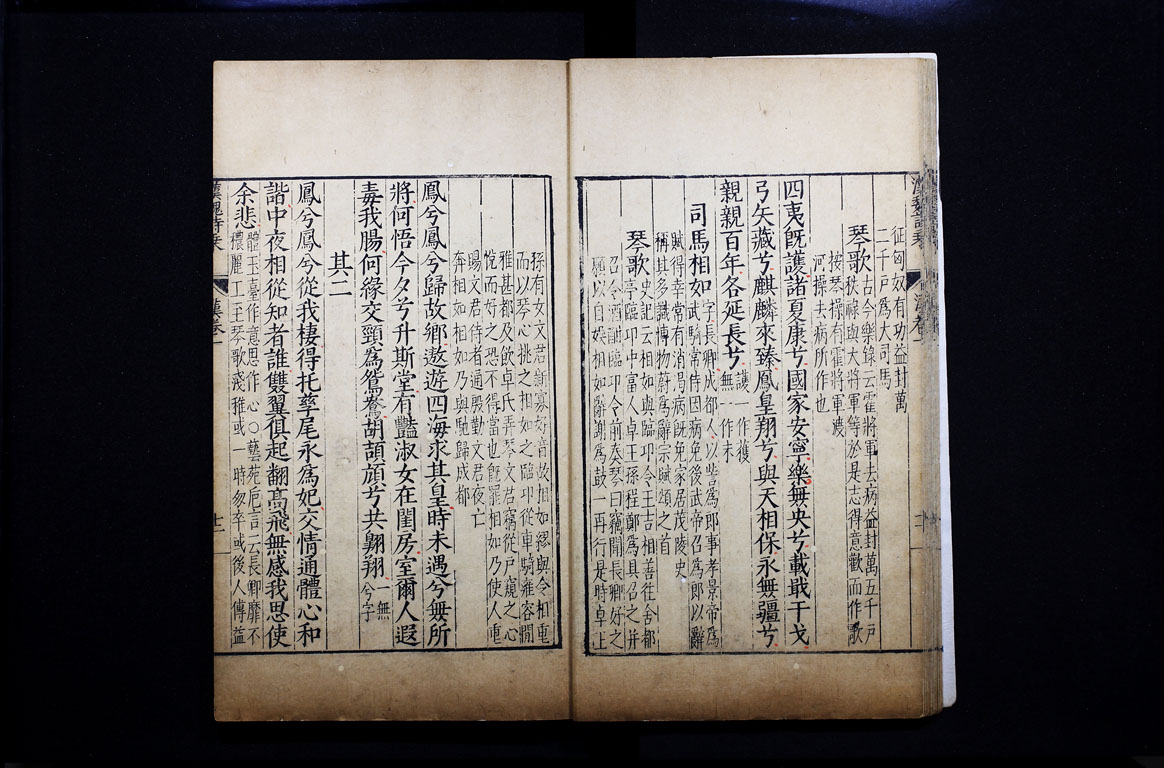 征匈奴有功益封萬
二千戶為大司馬
琴歌 古今樂錄云霍將軍去病益封萬五千戶
秩祿與大將軍等於是志得意歡而作歌
按琴操有霍將軍渡
河操去病所作也
四夷旣護諸夏康兮國家安寧樂無央兮載戢干戈
弓矢藏兮麒麟來臻鳳皇翔兮與天相保永無疆兮
親親百年各延長兮 護一作獲
無一作未
司馬相如 字長卿成都人以訾為郎事孝景帝為
武騎常侍因病免後武帝召為郎以辭
賦得幸常有消渴病旣免家居茂陵史
稱其多識博物蔚為辭宗賦頌之首
琴歌 史記云相如與臨卭令王吉相善往舍都
亭臨卭中富人卓王孫程鄭為具召之并
召令酒酣臨卭令前奏琴曰竊聞長卿好之
願以自娛相如辭謝為鼓一再行是時卓王
孫有女文君新寡好音故相如繆與令相重
而以琴心挑之相如之臨卭從車騎雍容閒
雅甚都及飲卓氏弄琴文君竊從戶窺之心
悅而好之恐不得當也旣罷相如乃使人重
賜文君侍者通殷勤文君夜亡
奔相如相如乃與馳歸成都
鳳兮鳳兮歸故鄉遨遊四海求其皇時未遇兮無所
將何悟今夕兮升斯堂有豔淑女在閨房室爾人遐
毒我腸何緣交頸為鴛鴦胡頡頏兮共翺翔 一無
兮字
其二
鳳兮鳳兮從我棲得托孳尾永為妃交情通體心和
諧中夜相從知者誰雙翼俱起翻高飛無感我思使
余悲 體玉臺作意思作心〇藝苑巵言云長卿靡不
穠麗工至琴歌淺稚或一時匆卒或後人傳益
漢魏詩乗 漢卷一 十一